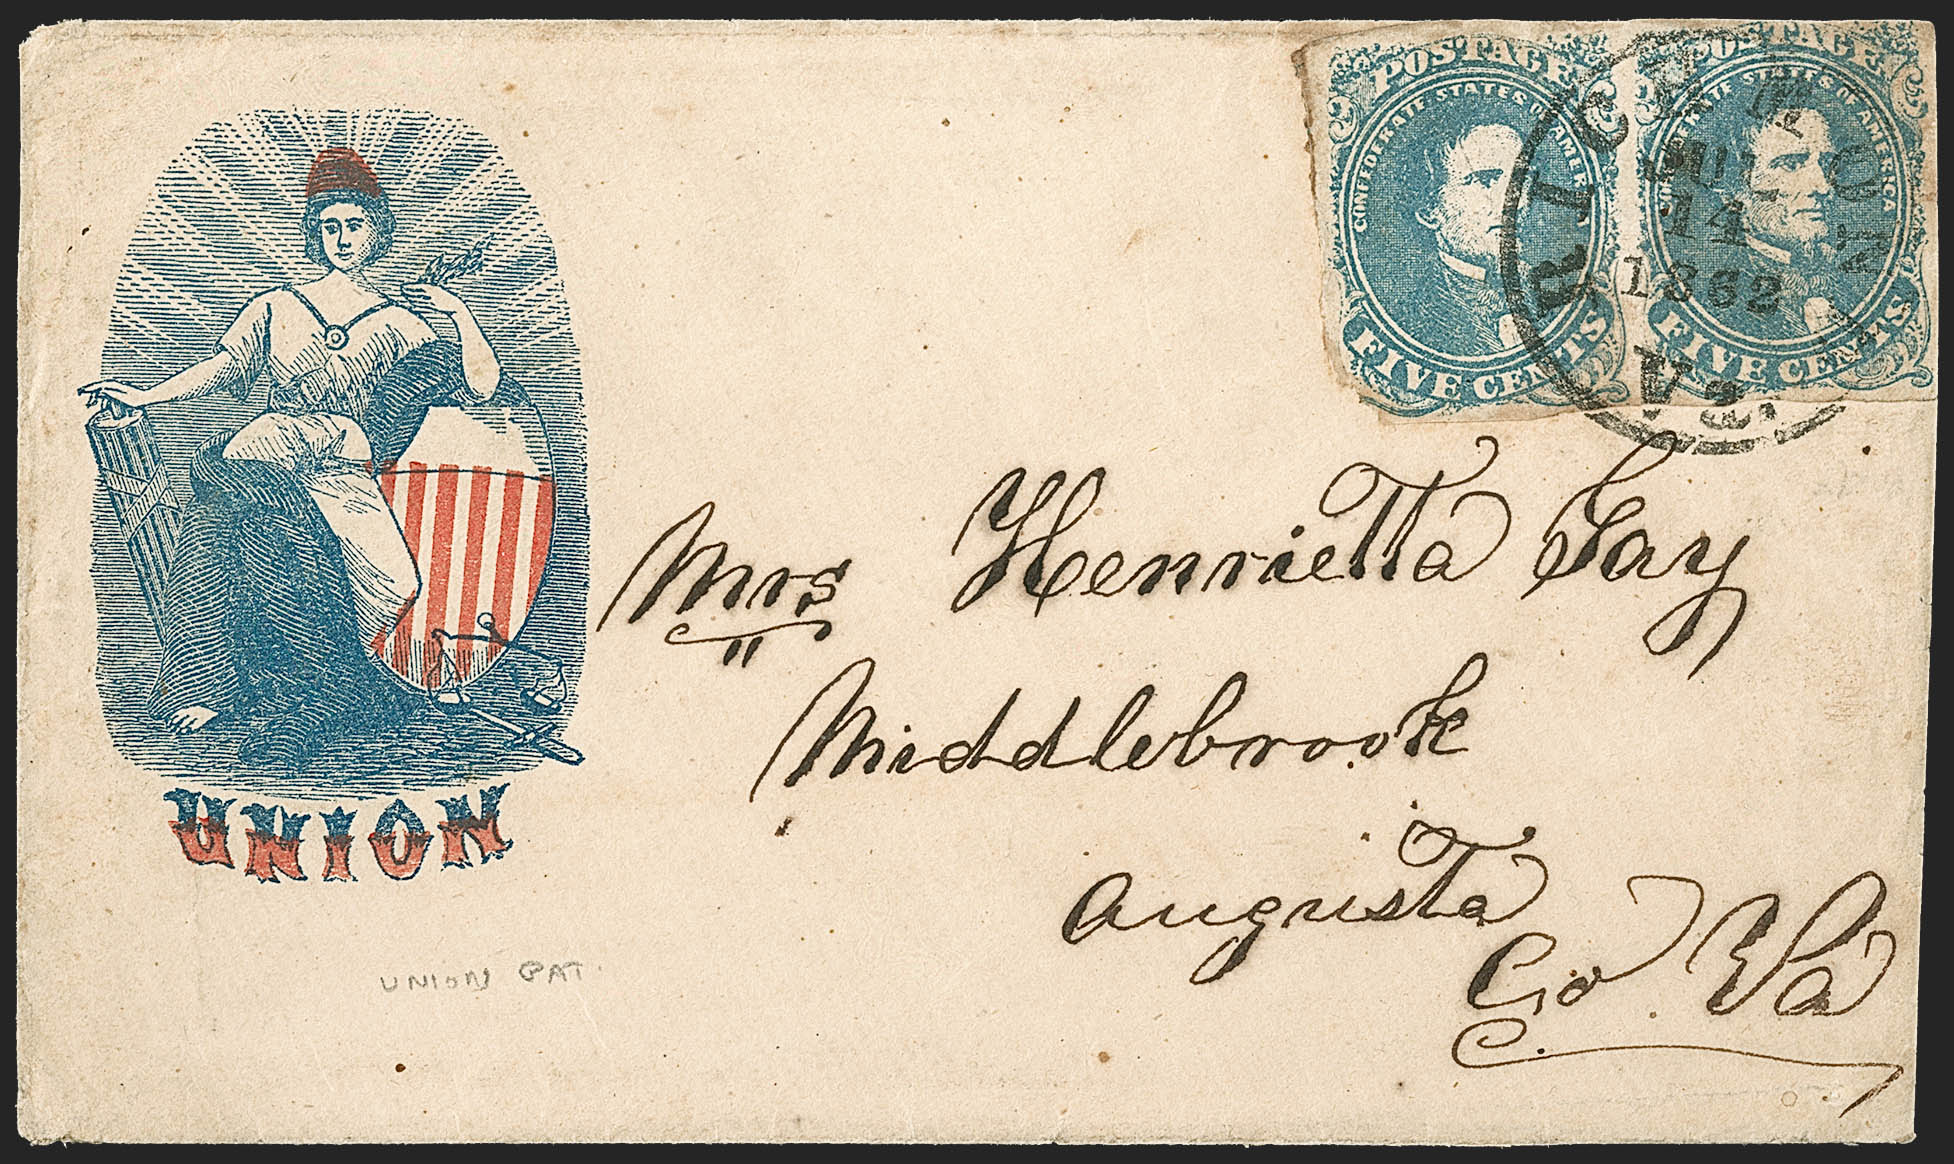 POSTAGE
CONFEDERATE STATES OF AMERICA
FIVE CENTS
POSTAGE
CONFEDERATE STATES OF AMERICA
FIVE CENTS
RICHMOND
JUL
14
1862
Va.
Mrs Henrietta Gay
Middlebrook
Augusta
Co Va
UNION
UNION PAT.